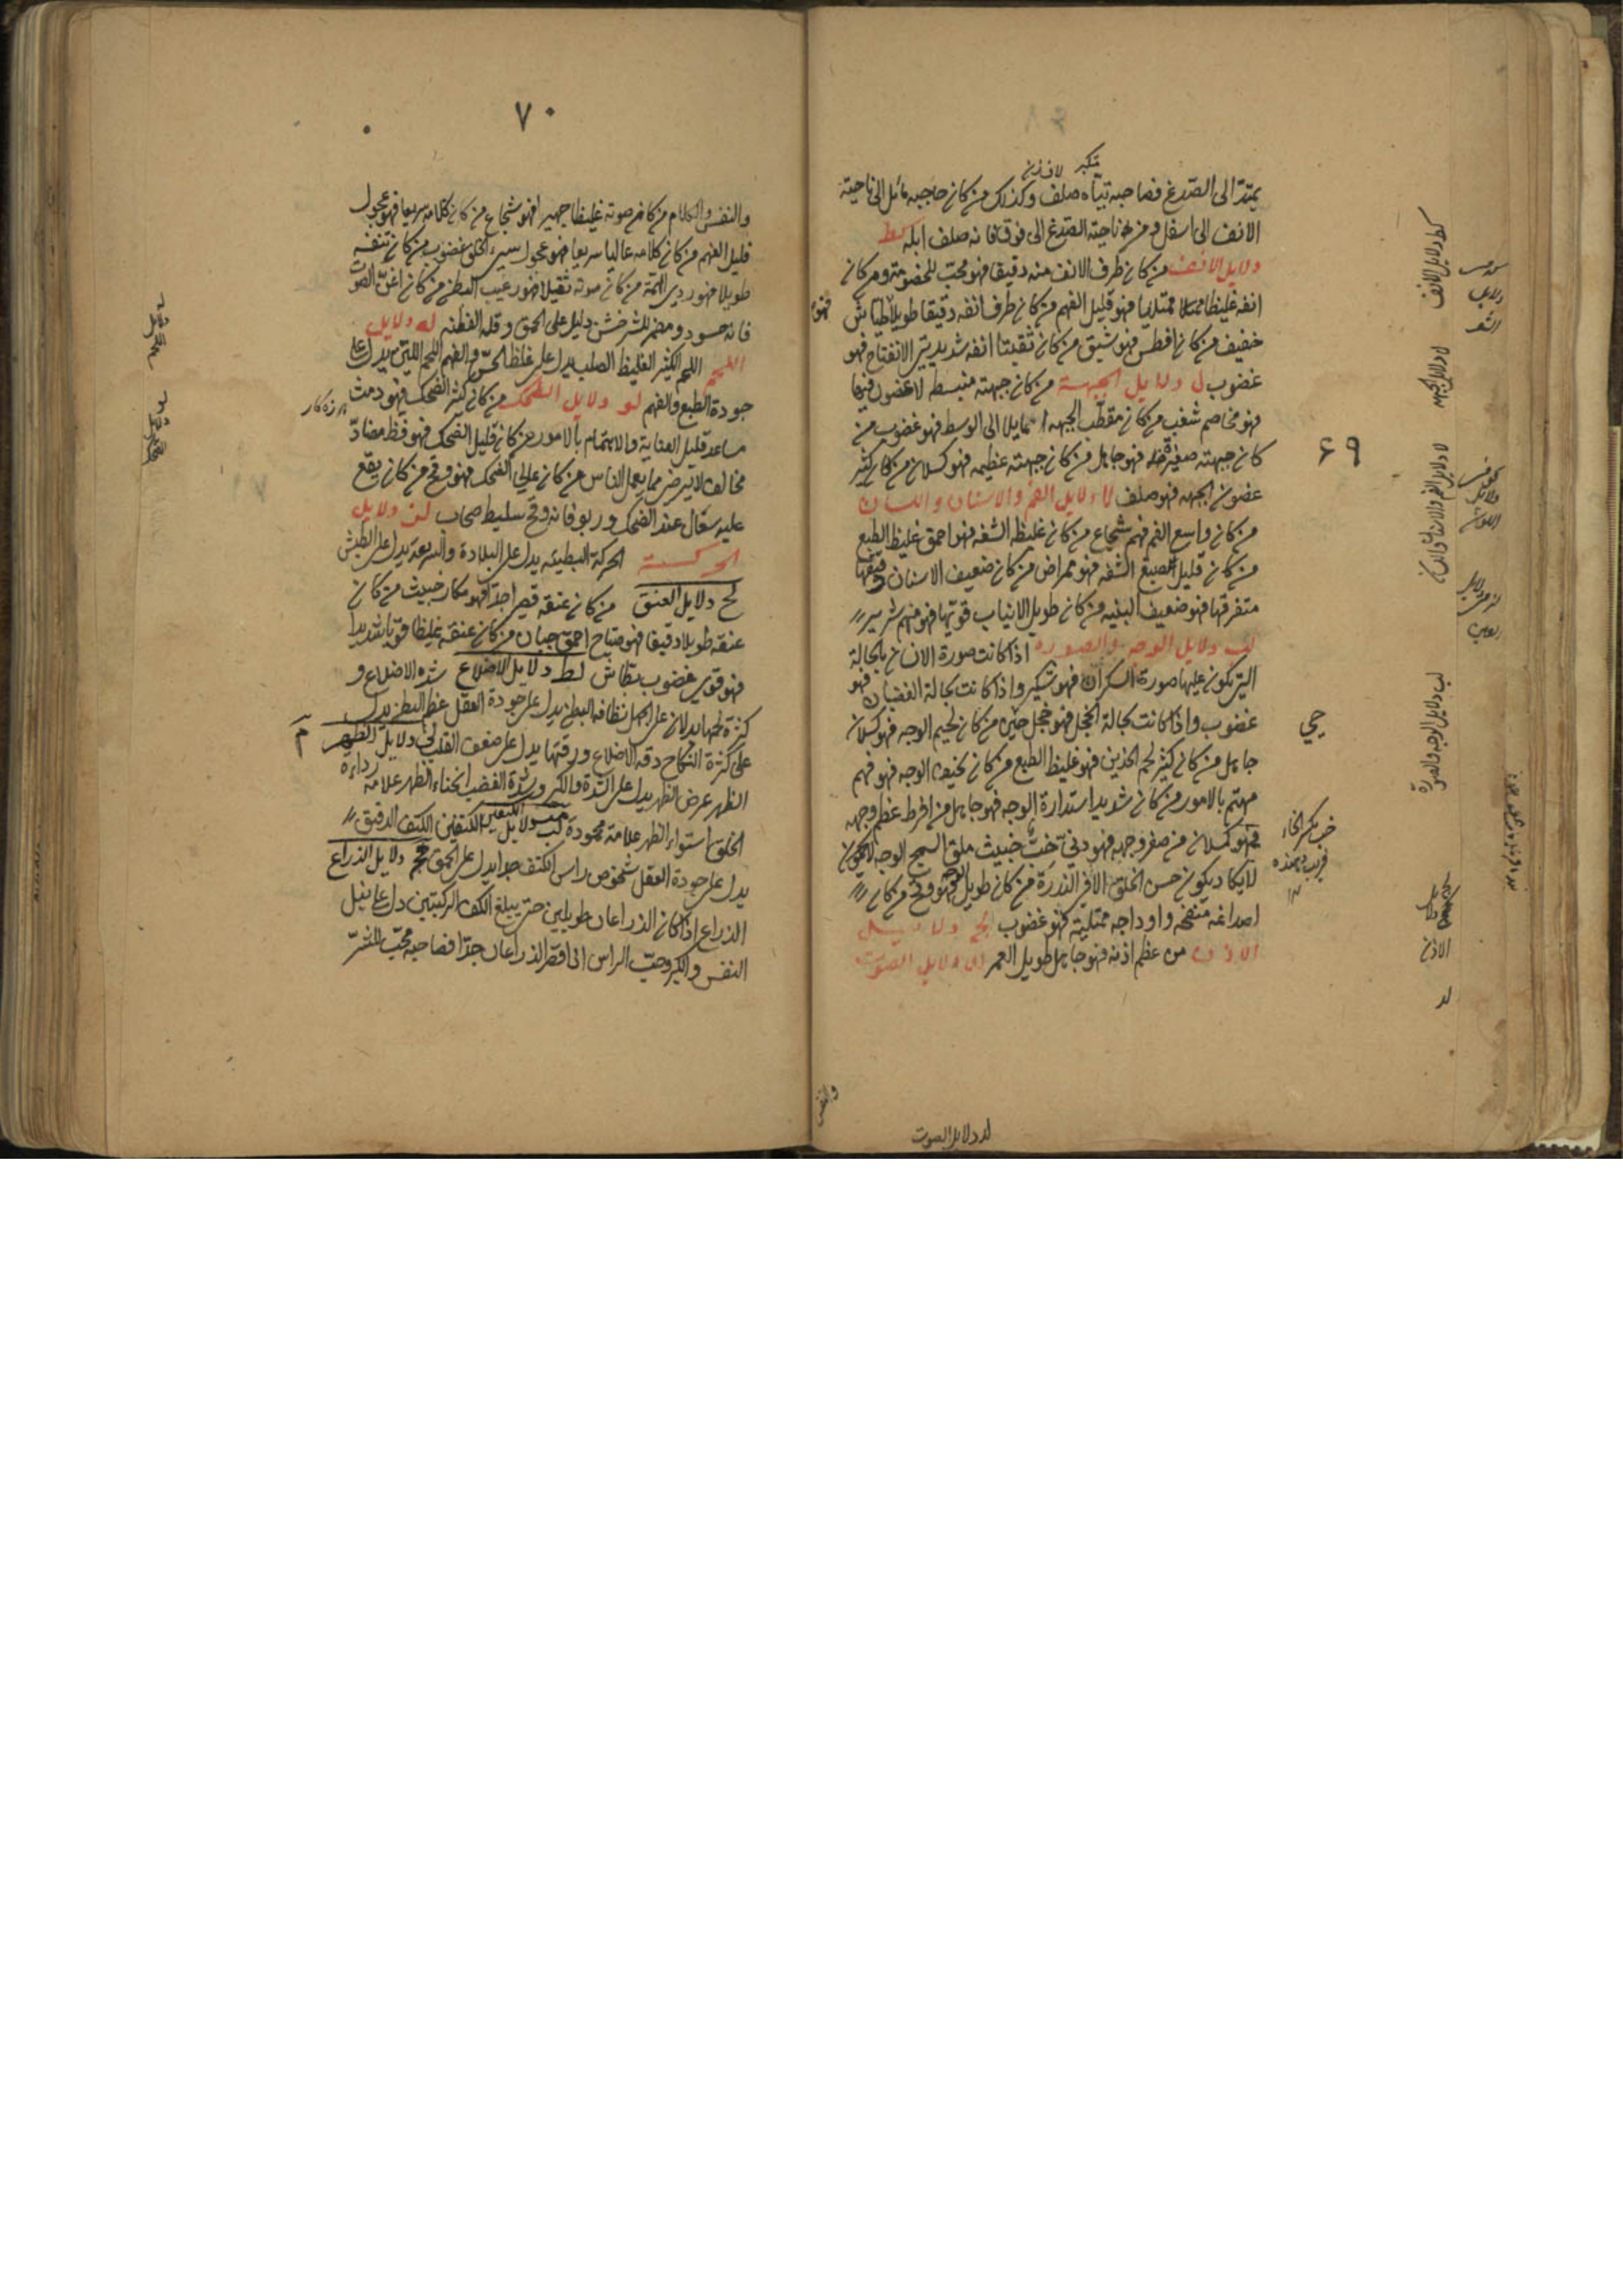 متكبر لافزن
يمتد الى الصدغ فصاحبه تياه صلف وكذلك من كان حاجبه مائل الى ناحية
الانف الى اسفل ومن ناحية الصدغ الى فوق فانه صلف ابله كط
دلايل الانف من كان طرف الانف منه دقيقا فهو محب للخصومة ومن كان
انفه غليظا ممتليا فهو قليل الفهم من كان طرف انفه دقيقا طويلا فهو طياش
خفيف من كان افطس فهو شبق من كان ثقبتا انفه شديدتي الانفتاح فهو
غضوب ل دلايل الجبهة من كان جبهته منبسط لا غضون فيها
فهو مخاصم شغب من كان مقطب الجبهة مايلا الى الوسط فهو غضوب من
كان جبهته صغيرة فهو جاهل من كان جبهته عظيمه فهو كسلان من كان كثير
غضون الجبهه فهو صلف لا دلايل الفم والاسنان واللسان
من كان واسع الفم فهم شجاع من كان غليظ الشفه فهو احمق غليظ الطبع
من كان قليل الصبغ الشفه فهو ممراض من كان ضعيف الاسنان رقيقها
متفرقها فهو ضعيف البنيه من كان طويل الانياب قويها فهو منهم شرير
لب دلايل الوجه والصوره اذا كانت صورة الانسان بالحالة
التي يكون عليها صورة السكران فهو سكير واذا كانت بحالة الغضبان فهو
غضوب واذا كانت بحالة الخجل فهو خجل حيي من كان لحيم الوجه فهو كسلان
جاهل من كان كثير لحم الخدين فهو غليظ الطبع من كان نحيف الوجه فهو فهم
مهتم بالامور من كان شديد استدارة الوجه فهو جاهل من افرط عظم وجهه
فهو كسلان من صغر وجهه فهو دني خب خبيث ملق السمج الوجه
لا يكاد يكون حسن الخلق الا في الندرة من كان طويل الوجه فهو وقح من كان
اصداغه منتفخه واوداجه ممتلية فهو غضوب لج دلايل
الاذن من عظم اذنه فهو جاهل طويل العمر لد دلايل الصوت
٦٩
حيي
كط دلايل الانف
لا دلايل الفم والاسنان واللسان
لب دلايل الوجه والصورة
الاذن
لد
لد دلايل الصوت
والنفس
٧٠
والنفس والكلام من كان صوته غليظا جهيرا فهو شجاع من كان كلامه سريعا فهو عجول
قليل الفهم من كان كلامه عاليا سريعا فهو عجول سيء الخلق غضوب من كان تنفسه
طويلا فهو ردي الهمة من كان صوته ثقيلا فهو رغيب البطن من كان اغن الصوت
فانه حسود ومضمر للشر خشن دليل على الحمق وقلة الفطنه له دلايل
اللحم اللحم الكثير الغليظ الصلب يدل على غلظ الحس والفهم اللحم اللين يدل على
جودة الطبع والفهم لو دلايل الضحك من كان كثير الضحك فهو دمث
مساعد قليل العناية والاهتمام بالامور من كان قليل الضحك فهو فظ مضاد
مخالف لا يرضى مما يعمل الناس من كان عالي الضحك فهو وقح من كان يقع
عليه سعال عند الضحك وربو فانه وقح سليط صخاب لز دلايل
الحركة الحركة البطيئه يدل على البلادة والسريعة يدل على الطيش
لح دلايل العنق من كان عنقه قصيرا جدا فهو مكار خبيث من كان
عنقه طويلا دقيقا فهو صياح احمق جبان من كان عنقه غليظا قويا شديدا
فهو قوي غضوب بطاش لط دلايل الاضلاع شدة الاضلاع و
كثرة لحمها يدلان على الجهل نظافة البطن يدل على جودة العقل عظم البطن يدل
على كثرة النكاح دقة الاضلاع ورقتها يدل على ضعف القلب دلايل الظهر
الظهر عرض الظهر يدل على الشدة والكبر وشدة الغضب انحناء الظهر علامة رداءة
الخلق استواء الظهر علامة محمودة دلايل الكتفين الكتف الدقيق
يدل على جودة العقل شخوص راس الكتف جدا يدل على الحمق دلايل الذراع
الذراع اذا كان الذراعان طويلين حتى يبلغ الكف الركبتين دل على نبل
النفس والكبر وحب الراس اذا قصر الذراعان جدا فصاحبه محب للشر